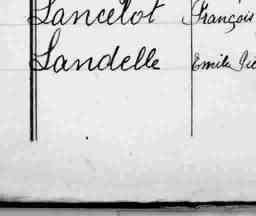 Lancelot François
Landelle Emile